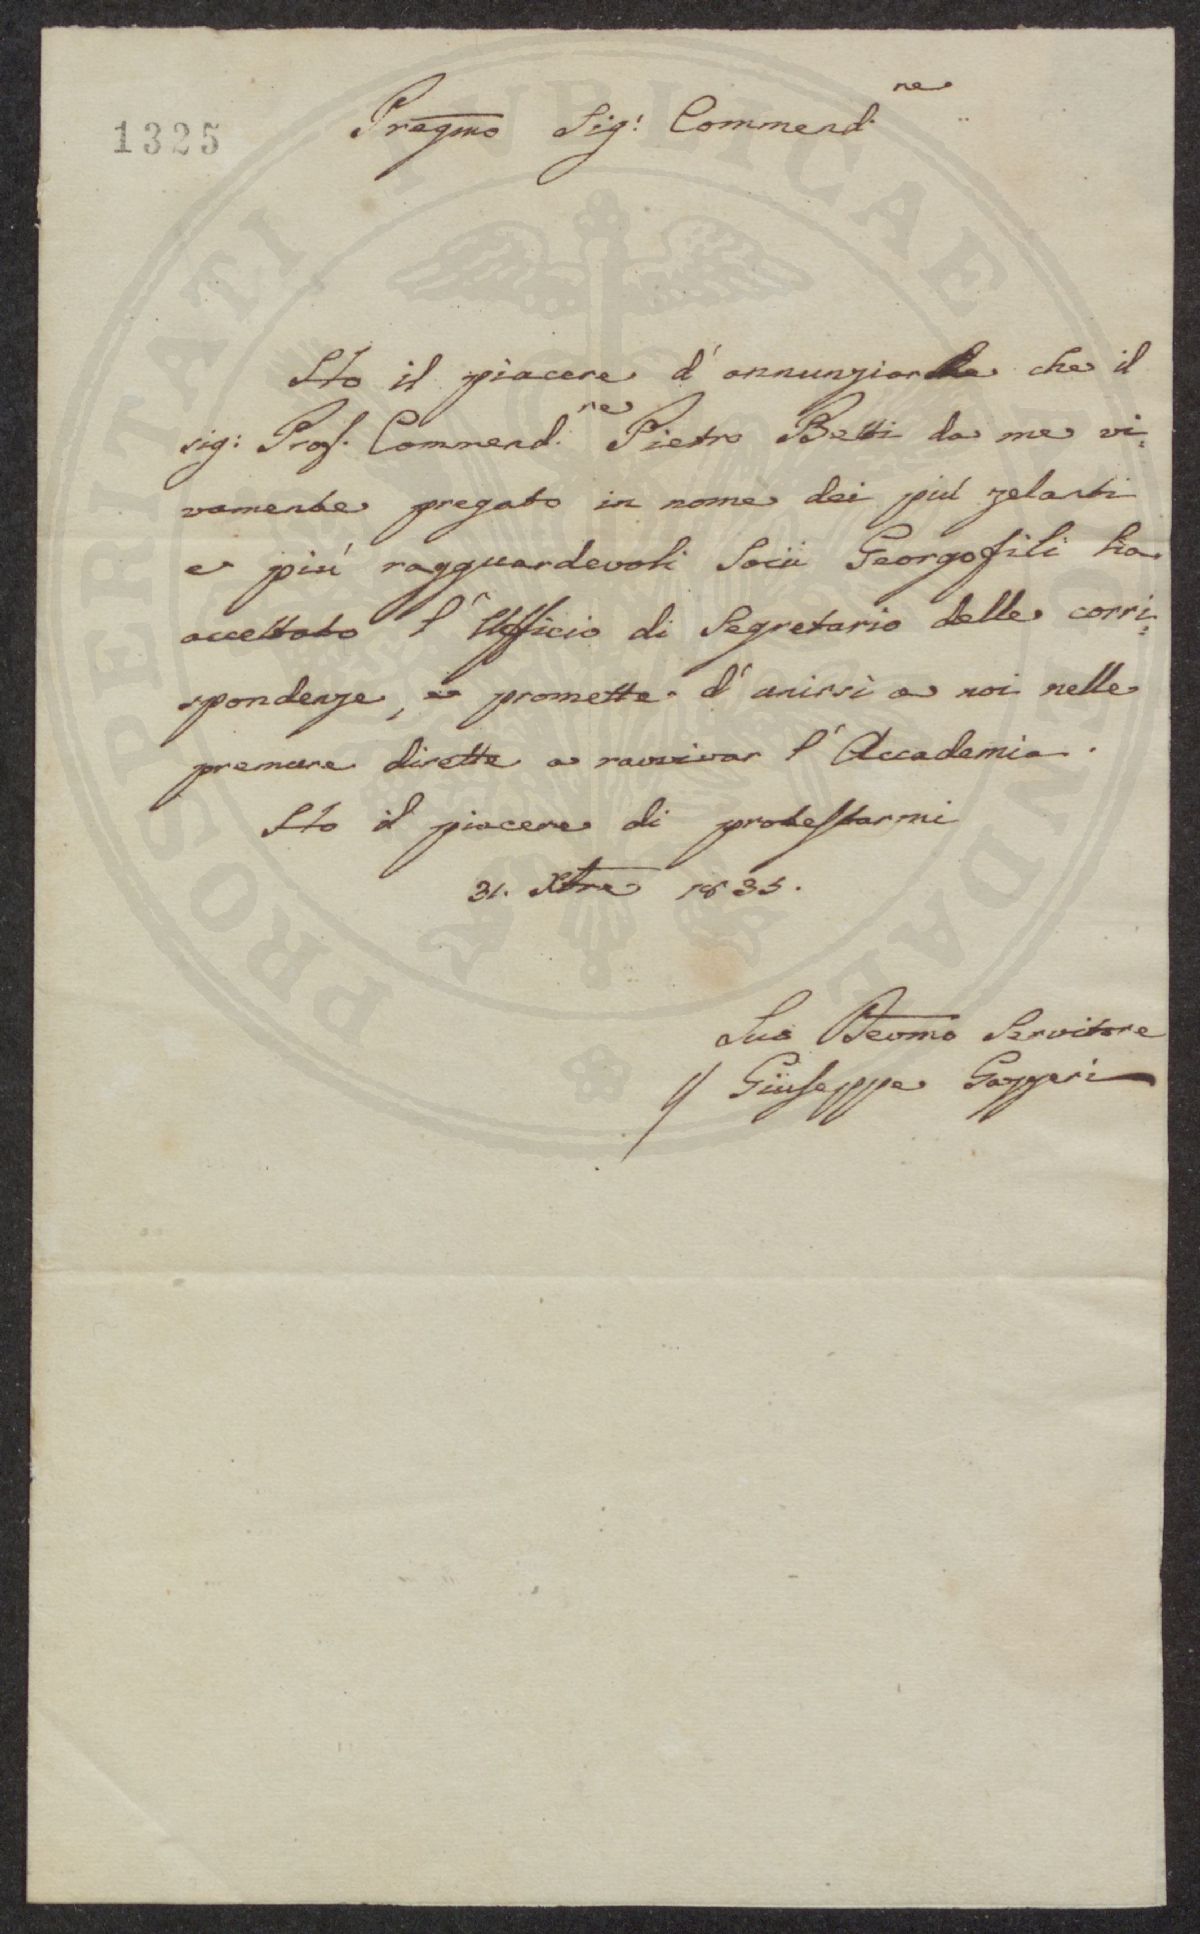 1325
Pregmo Sig.r Commend.re
Ho il piacere d'annunziarle che il
sig: Prof. Commend.re Pietro Betti da me vi=
vamente pregato in nome dei più zelanti
e più ragguardevoli Socii Georgofili ha
accettato l'Ufficio di Segretario delle corri=
spondenze, e promette d'unirsi a noi nelle
premure dirette a ravvivar l'Accademia.
Ho il piacere di protestarmi
31. Xbre 1835.
Suo Devmo Servitore
Giuseppe Gazzeri
PROSPERITATI PUBLICAE AUGENDAE